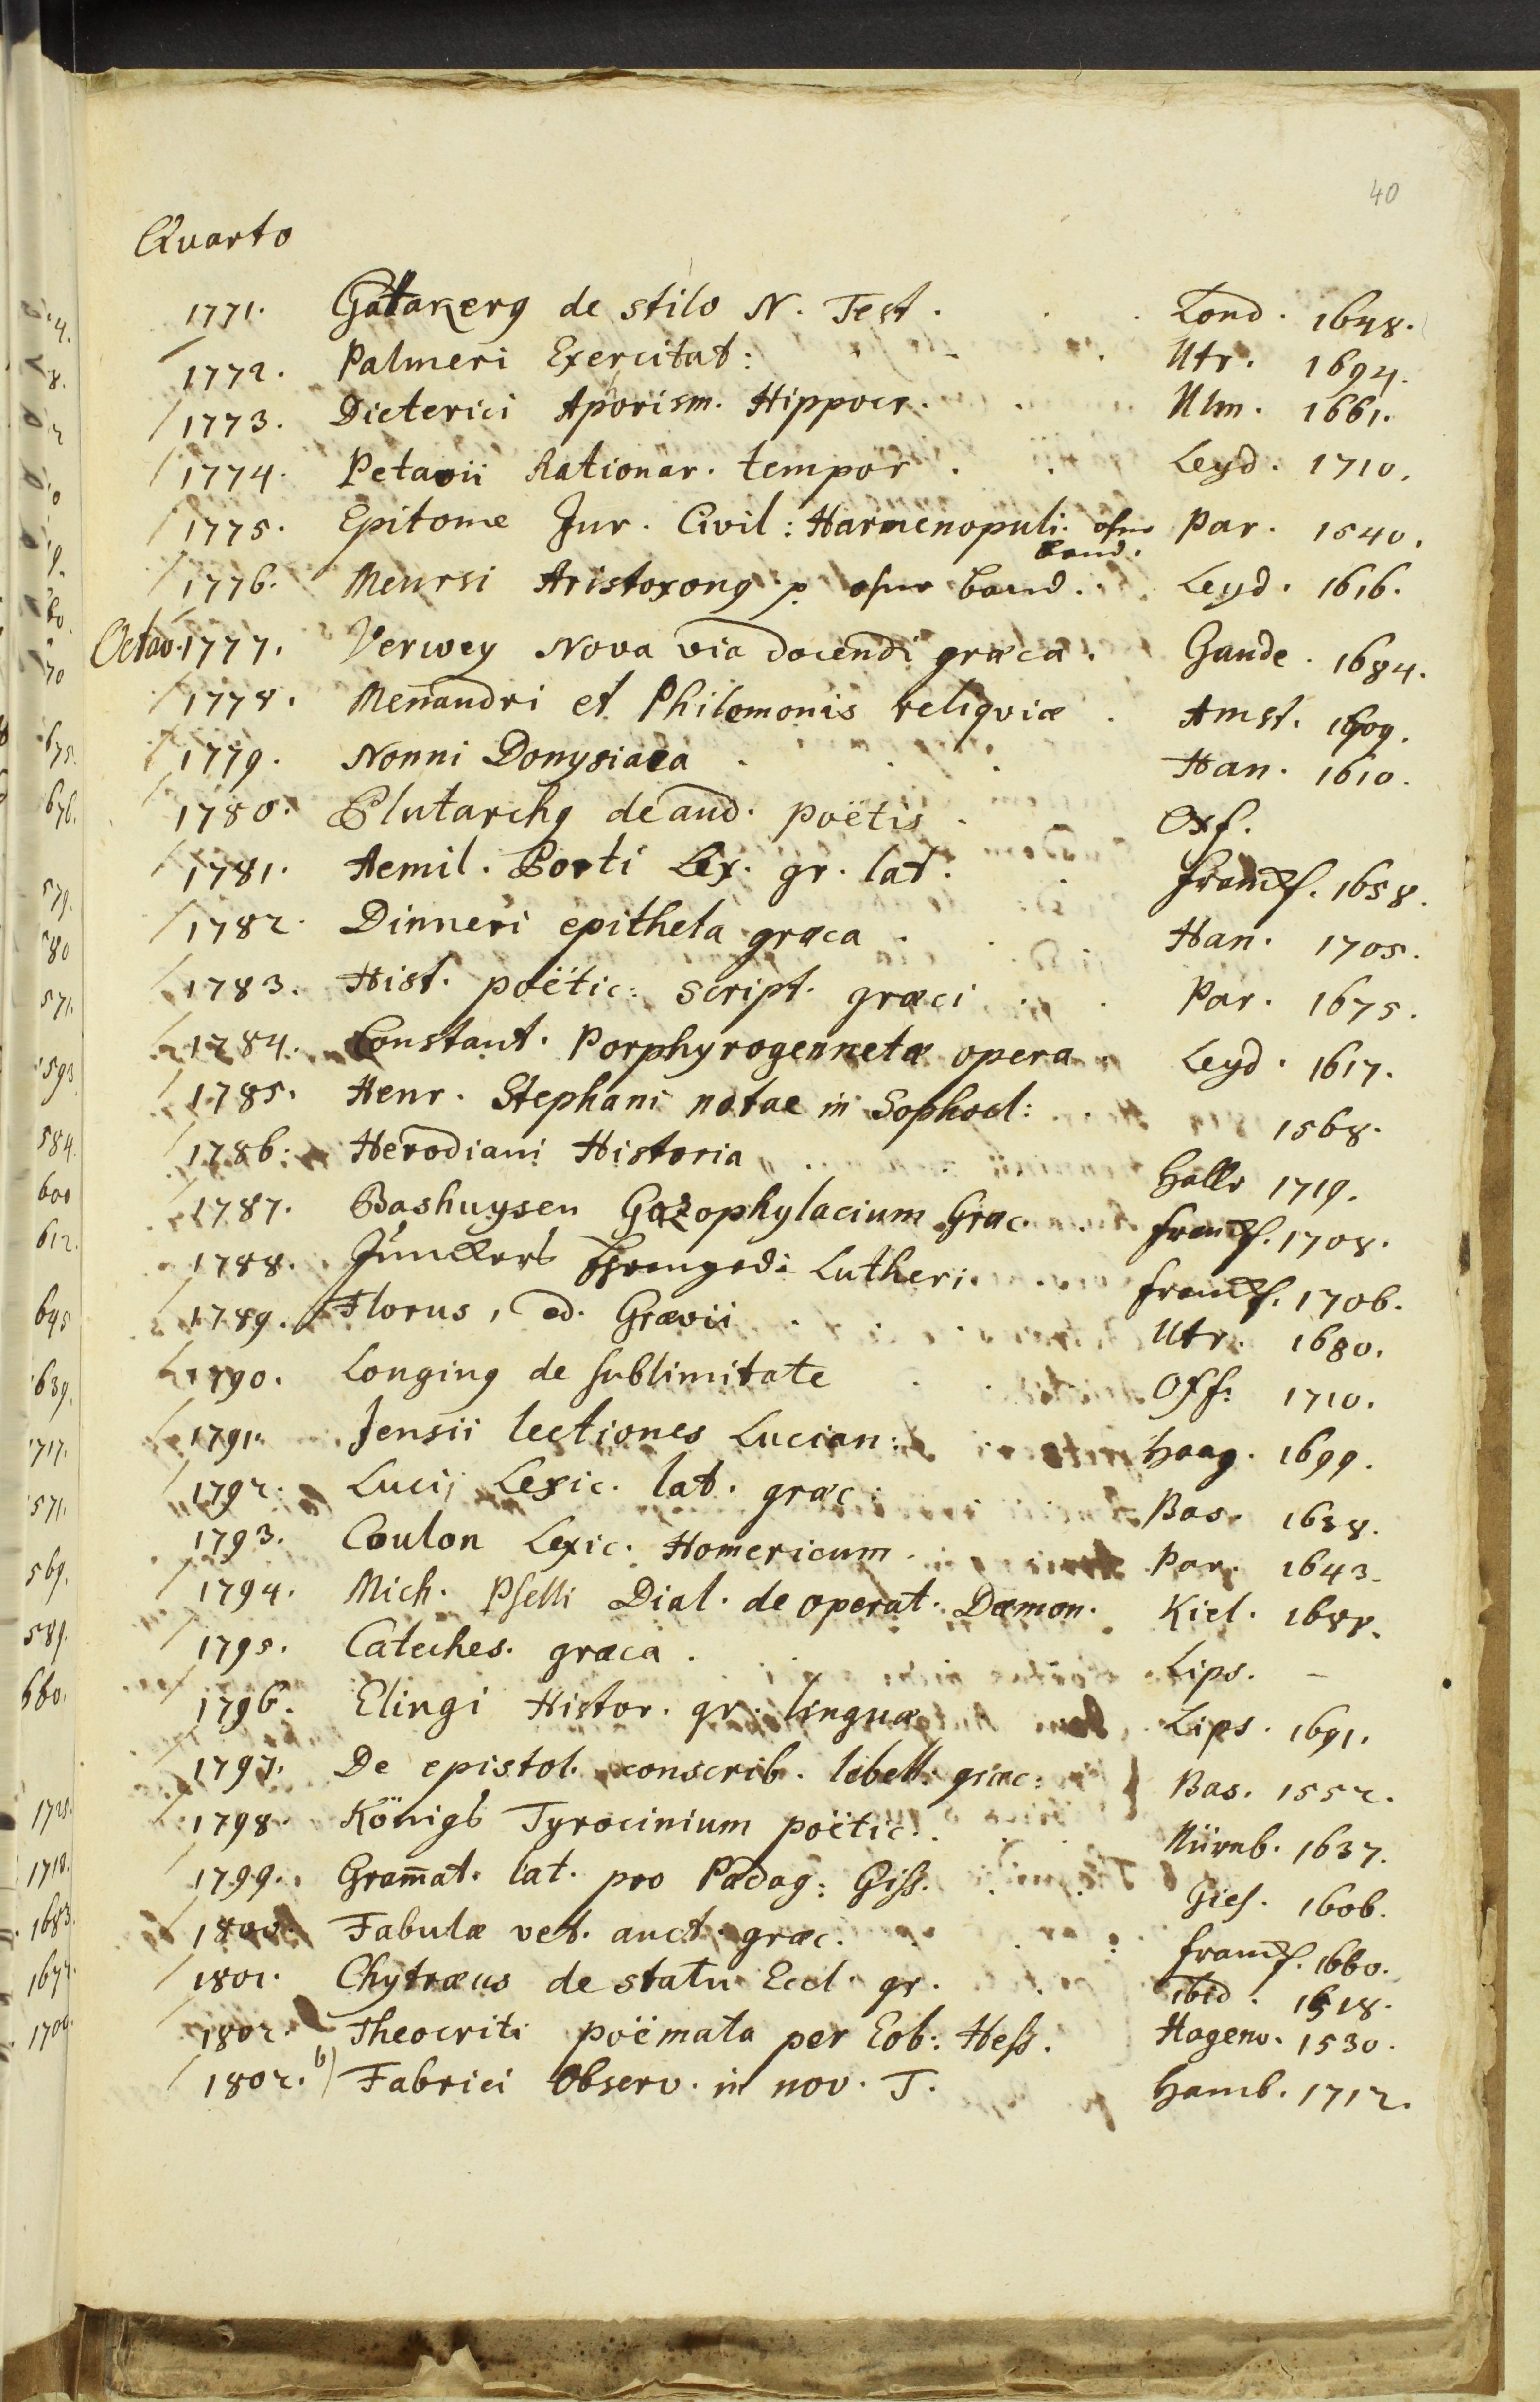 40
Quarto
1771. Gatakerq de stilo N. Test. Lond. 1648.
1772. Palmeri Exercitat: Utr. 1694.
1773. Dieterici Aporism. Hippocr. Ulm. 1661.
1774. Petavii Rationar. tempor. Leyd. 1710.
1775. Epitome Jur. Civil: Harmenopuli. ohne band. Par. 1540.
1776. Meursi Aristoxong p. ohne band. Leyd. 1616.
Octav. 1777. Verwey Nova via docendi græca. Gaude. 1684.
1778. Menandri et Philemonis reliqviæ. Amst. 1709.
1779. Nonni Donysiaca. Han. 1610.
1780. Plutarchq de aud. poëtis. Oxf.
1781. Aemil. Porti Lex. gr. lat. franckf. 1658.
1782. Dinneri epitheta græca. Han. 1705.
1783. Hist. poëtic: script. græci. Par. 1675.
1784. Constant. Porphyrogennetæ opera. Leyd. 1617.
1785. Henr. Stephani notae in Sophocl: 1568.
1786. Herodiani Historia. Halle 1719.
1787. Bashuysen Gazophylacium Græc. franckf. 1708.
1788. Junckers Ehrenged: Lutheri. franckf. 1706.
1789. Florus, ed. Grævii. Utr. 1680.
1790. Longinq de sublimitate Oxf. 1710.
1791. Jensii lectiones Lucian: Haag. 1699.
1792. Lucij Lexic. lat. græc: Bas. 1638.
1793. Coulon Lexic. Homericum. Par. 1643.
1794. Mich. Pselli Dial. de operat. Dæmon. Kiel. 1688.
1795. Cateches. græca. Lips. –
1796. Elingi Histor. gr. linguæ Lips. 1691.
1797. De epistol. conscrib. libell. græc: Bas. 1552.
1798. Königs Tyrocinium poëtic. Nürnb. 1637.
1799. Gram̄at. lat. pro Pædag: Giss. Gies. 1606.
1800. Fabulæ vet. auct. græc. franckf. 1660.
1801. Chytræus de statu Eccl. gr. ibid. 1518.
1802. Theocriti poëmata per Eob: Hess. Hagenv. 1530.
1802. b) Fabrici Observ. in nov. T. Hamb. 1712.